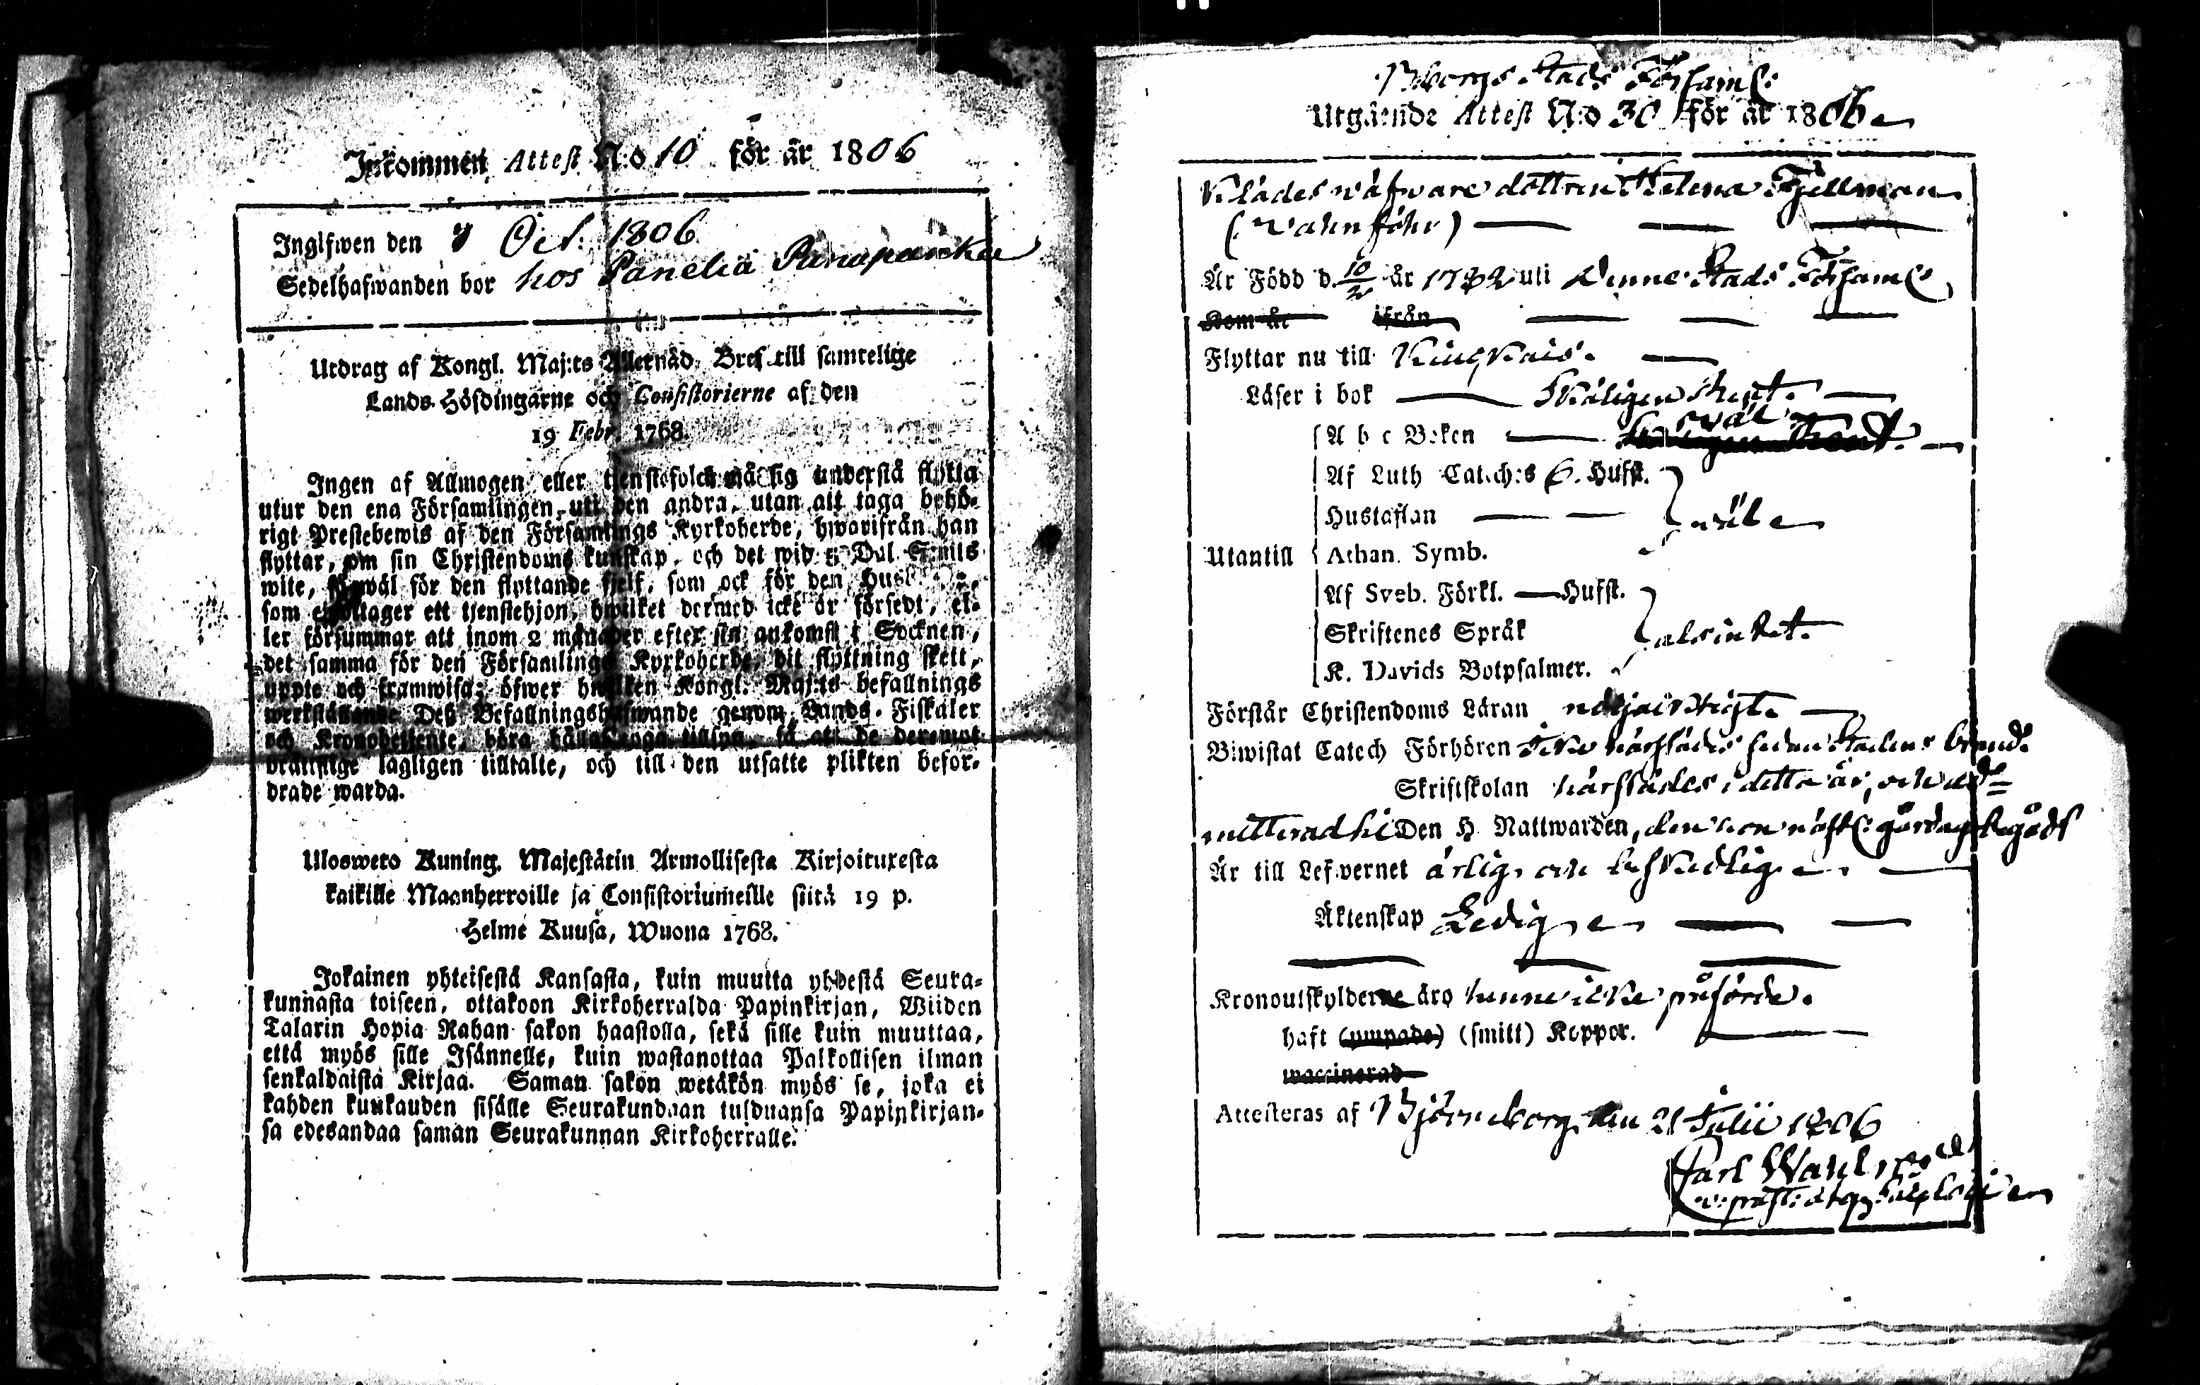 Inkommen Attest N:o 10 för år 1806
Ingifwen den 7 Oct. 1806
Sedelhafwanden bor hos Panelia
Utdrag af Kongl. Maj:ts Allernåd. Bref till samtelige
Lands-Höfdingarne och Consistorierne af den
19 Febr. 1768.
Ingen af Allmogen eller tjenstefolck må sig understå flytta
utur den ena Församlingen uti den andra, utan att taga behö-
rigt Prestebewis af den Församlings Kyrkoherde, hwarifrån han
flyttar, om sin Christendoms kunskap, och det wid 5 Dal. S:mts
wite, så wäl för den flyttande sjelf, som ock för den
som emottager ett tjenstehjon, hwilket dermed icke är försedt, el-
ler försummar att inom 2 månader efter sin ankomst i Socknen,
det samma för den Församlings Kyrkoherde, dit flyttning skett,
uppte och framwisa; öfwer hwilken Kongl. Maj:ts befallnings
werkställande Deß Befallningshafwande genom Lands-Fiskaler
och Kronobetjente, böra hålla noga tillsyn, så att de deremot
brottslige lagligen tilltalte, och till den utsatte plikten befor-
drade warda.
Ulosweto Kuning. Majestätin Armollisesta Kirjoituxesta
kaikille Maanherroille ja Consistoriumeille siitä 19 p.
Helme Kuusa, Wuona 1768.
Jokainen yhteisestä Kansasta, kuin muutta yhdestä Seura-
kunnasta toiseen, ottakoon Kirkoherralda Papinkirjan, Wiiden
Talarin Hopia Rahan sakon haastolla, sekä sille kuin muuttaa,
että myös sille Isännelle, kuin wastanottaa Palkollisen ilman
senkaldaista Kirjaa. Saman sakon wetäkön myös se, joka ei
kahden kuukauden sisälle Seurakundaan tulduansa Papinkirjan-
sa edesandaa saman Seurakunnan Kirkoherralle.
Bborgs Stads Församl:
Utgående Attest N:o 30 för år 1806
Klädeswäfware dottren Helena Fjellman
(Wahnföhr)
Är Född d. 10/2 år 1782 uti denne Stads Församl.
Kom år ifrån
Flyttar nu till Kiukais.
Läser i bok Skäligen
A b c Boken wäl
Af Luth Catech:s 6. Hufst.
Hustaflan wäl
Utantill Athan. Symb.
Af Sveb. Förkl. Hufst.
Skriftenes Språk alsintet.
K. Davids Botpsalmer.
Förstår Christendoms Läran nöjaktigt.
Biwistat Catech Förhören icke härstädes sedan Stadens brand.
Skriftskolan härstädes i detta år, och ad-
mitterad til Den H. Nattwarden, den hon näst: begådt
Är till Lefwernet ärlig och beskedlig
Äktenskap Ledig
Kronoutskylderne äro henne icke påförde.
haft (ympade) (smitt) Koppor.
waccinerad
Attesteras af Björneborg den 21 Julii 1806
Carl